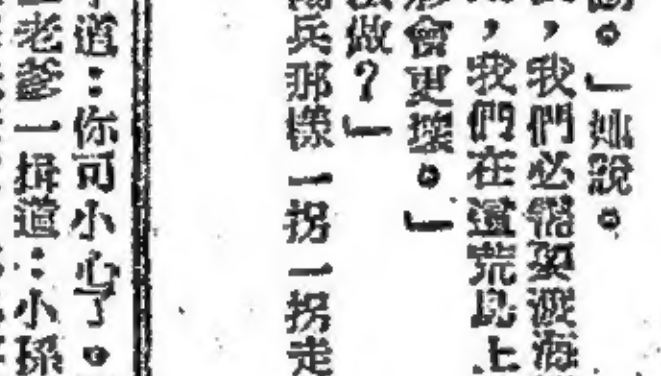 。」她說。
,我們必需要渡海
,我們在這荒島上
會更壞。」
做?」
兵那樣一拐一拐走
道:你可小心了。
老爹一揖道:小孫